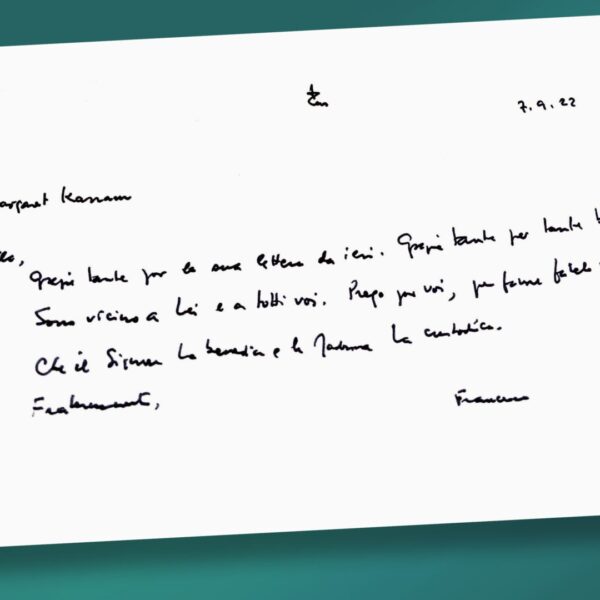 7.9.22
argaret Karram
Grazie tante per la sua lettera da ieri. Grazie tante per tante
Sono vicino a Lei e a tutti voi. Prego per voi, per favore fatelo
Che il Signore La benedica e la Madonna La custodisca.
Fraternamente,
Francesco